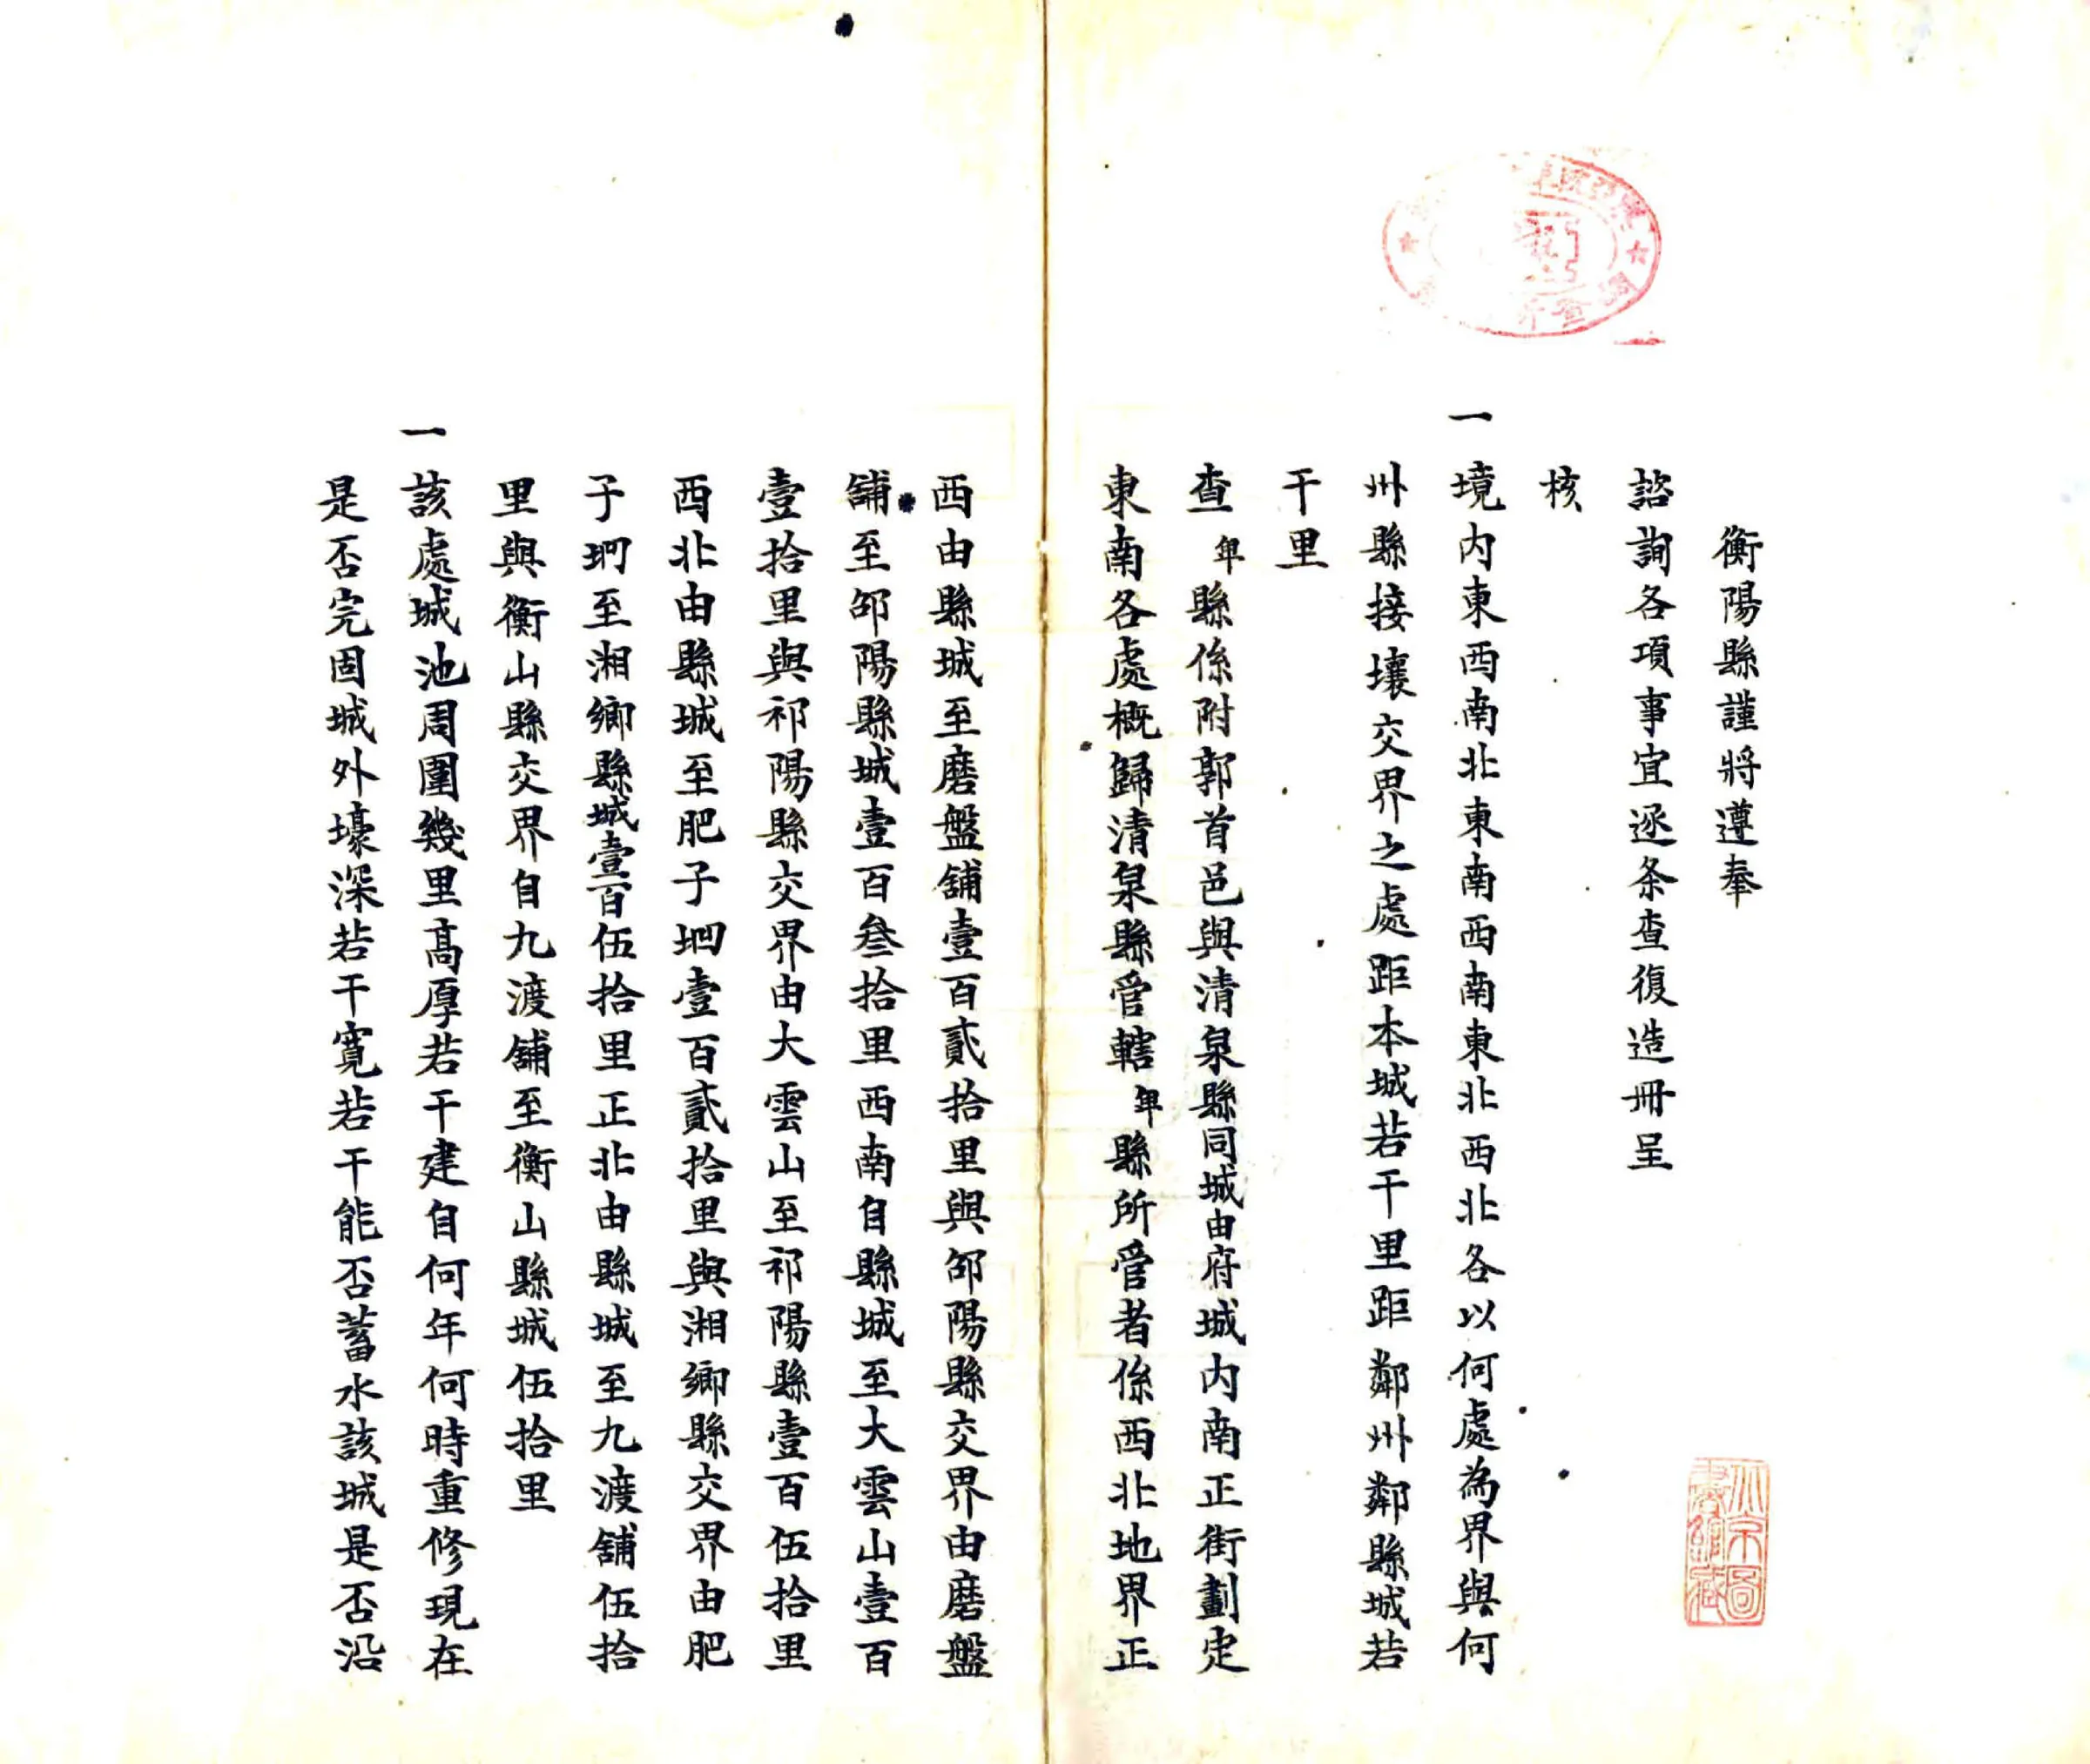 衡陽縣謹將遵奉
諮詢各項事宜逐条查復造冊呈
核
一境内東西南北東南西南東北西北各以何處為界與何
州縣接壤交界之處距本城若干里距鄰州鄰縣城若
干里
查卑縣係附郭首邑與清泉縣同城由府城内南正街劃定
東南各處概歸清泉縣管轄卑縣所管者係西北地界正
西由縣城至磨盤舖壹百貳拾里與邵陽縣交界由磨盤
舖至邵陽縣城壹百叁拾里西南自縣城至大雲山壹百
壹拾里與祁陽縣交界由大雲山至祁陽縣壹百伍拾里
西北由縣城至肥子坳壹百貳拾里與湘鄉縣交界由肥
子坳至湘鄉縣城壹百伍拾里正北由縣城至九渡舖伍拾
里與衡山縣交界自九渡舖至衡山縣城伍拾里
一該處城池周圍幾里高厚若干建自何年何時重修現在
是否完固城外壕深若干寬若干能否蓄水該城是否沿
北京圖
書館藏